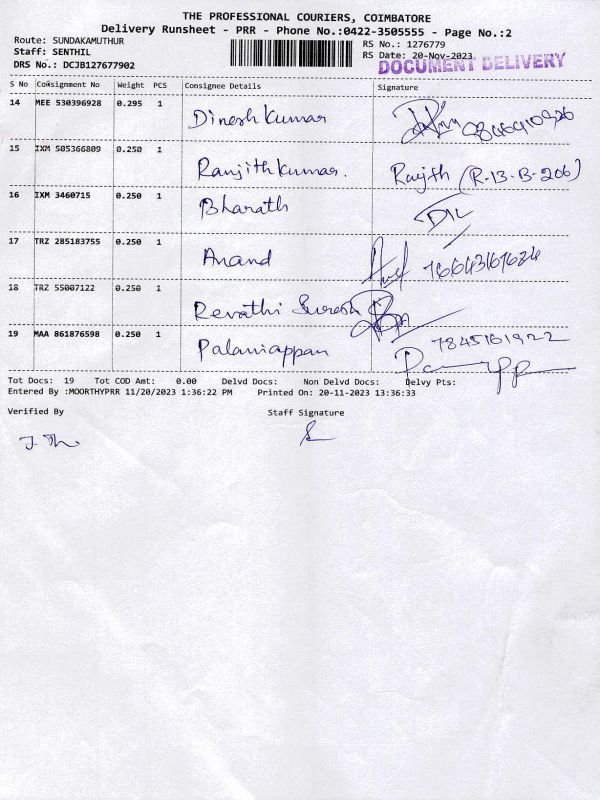 THE PROFESSIONAL COURIERS, COIMBATORE
Delivery Runsheet - PRR - Phone No.:0422-3505555 - Page No.:2
Route: SUNDAKAMUTHUR RS No.: 1276779
Staff: SENTHIL RS Date: 20-Nov-2023
DRS No.: DCJB127677902 DOCUMENT DELIVERY
S No Consignment No Weight PCS Consignee Details Signature
14 MEE 530396928 0.295 1 Dinesh Kumar
15 IXM 505366809 0.250 1 Ranjith Kumar. Ranjith (R-13-B-206)
16 IXM 3460715 0.250 1 Bharath
17 TRZ 285183755 0.250 1 Anand
18 TRZ 55007122 0.250 1 Revathi Suresh
19 MAA 861876598 0.250 1 Palaniappan 7845161922
Tot Docs: 19 Tot COD Amt: 0.00 Delvd Docs: Non Delvd Docs: Delvy Pts:
Entered By :MOORTHYPRR 11/20/2023 1:36:22 PM Printed On: 20-11-2023 13:36:33
Verified By Staff Signature